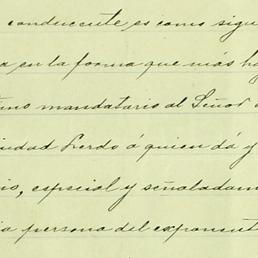 conducente es como sigu
a en la forma que más ha
mandatario al Señor
iudad Lerdo á quien dá y
io, especial y señaladam
ia persona del exponent